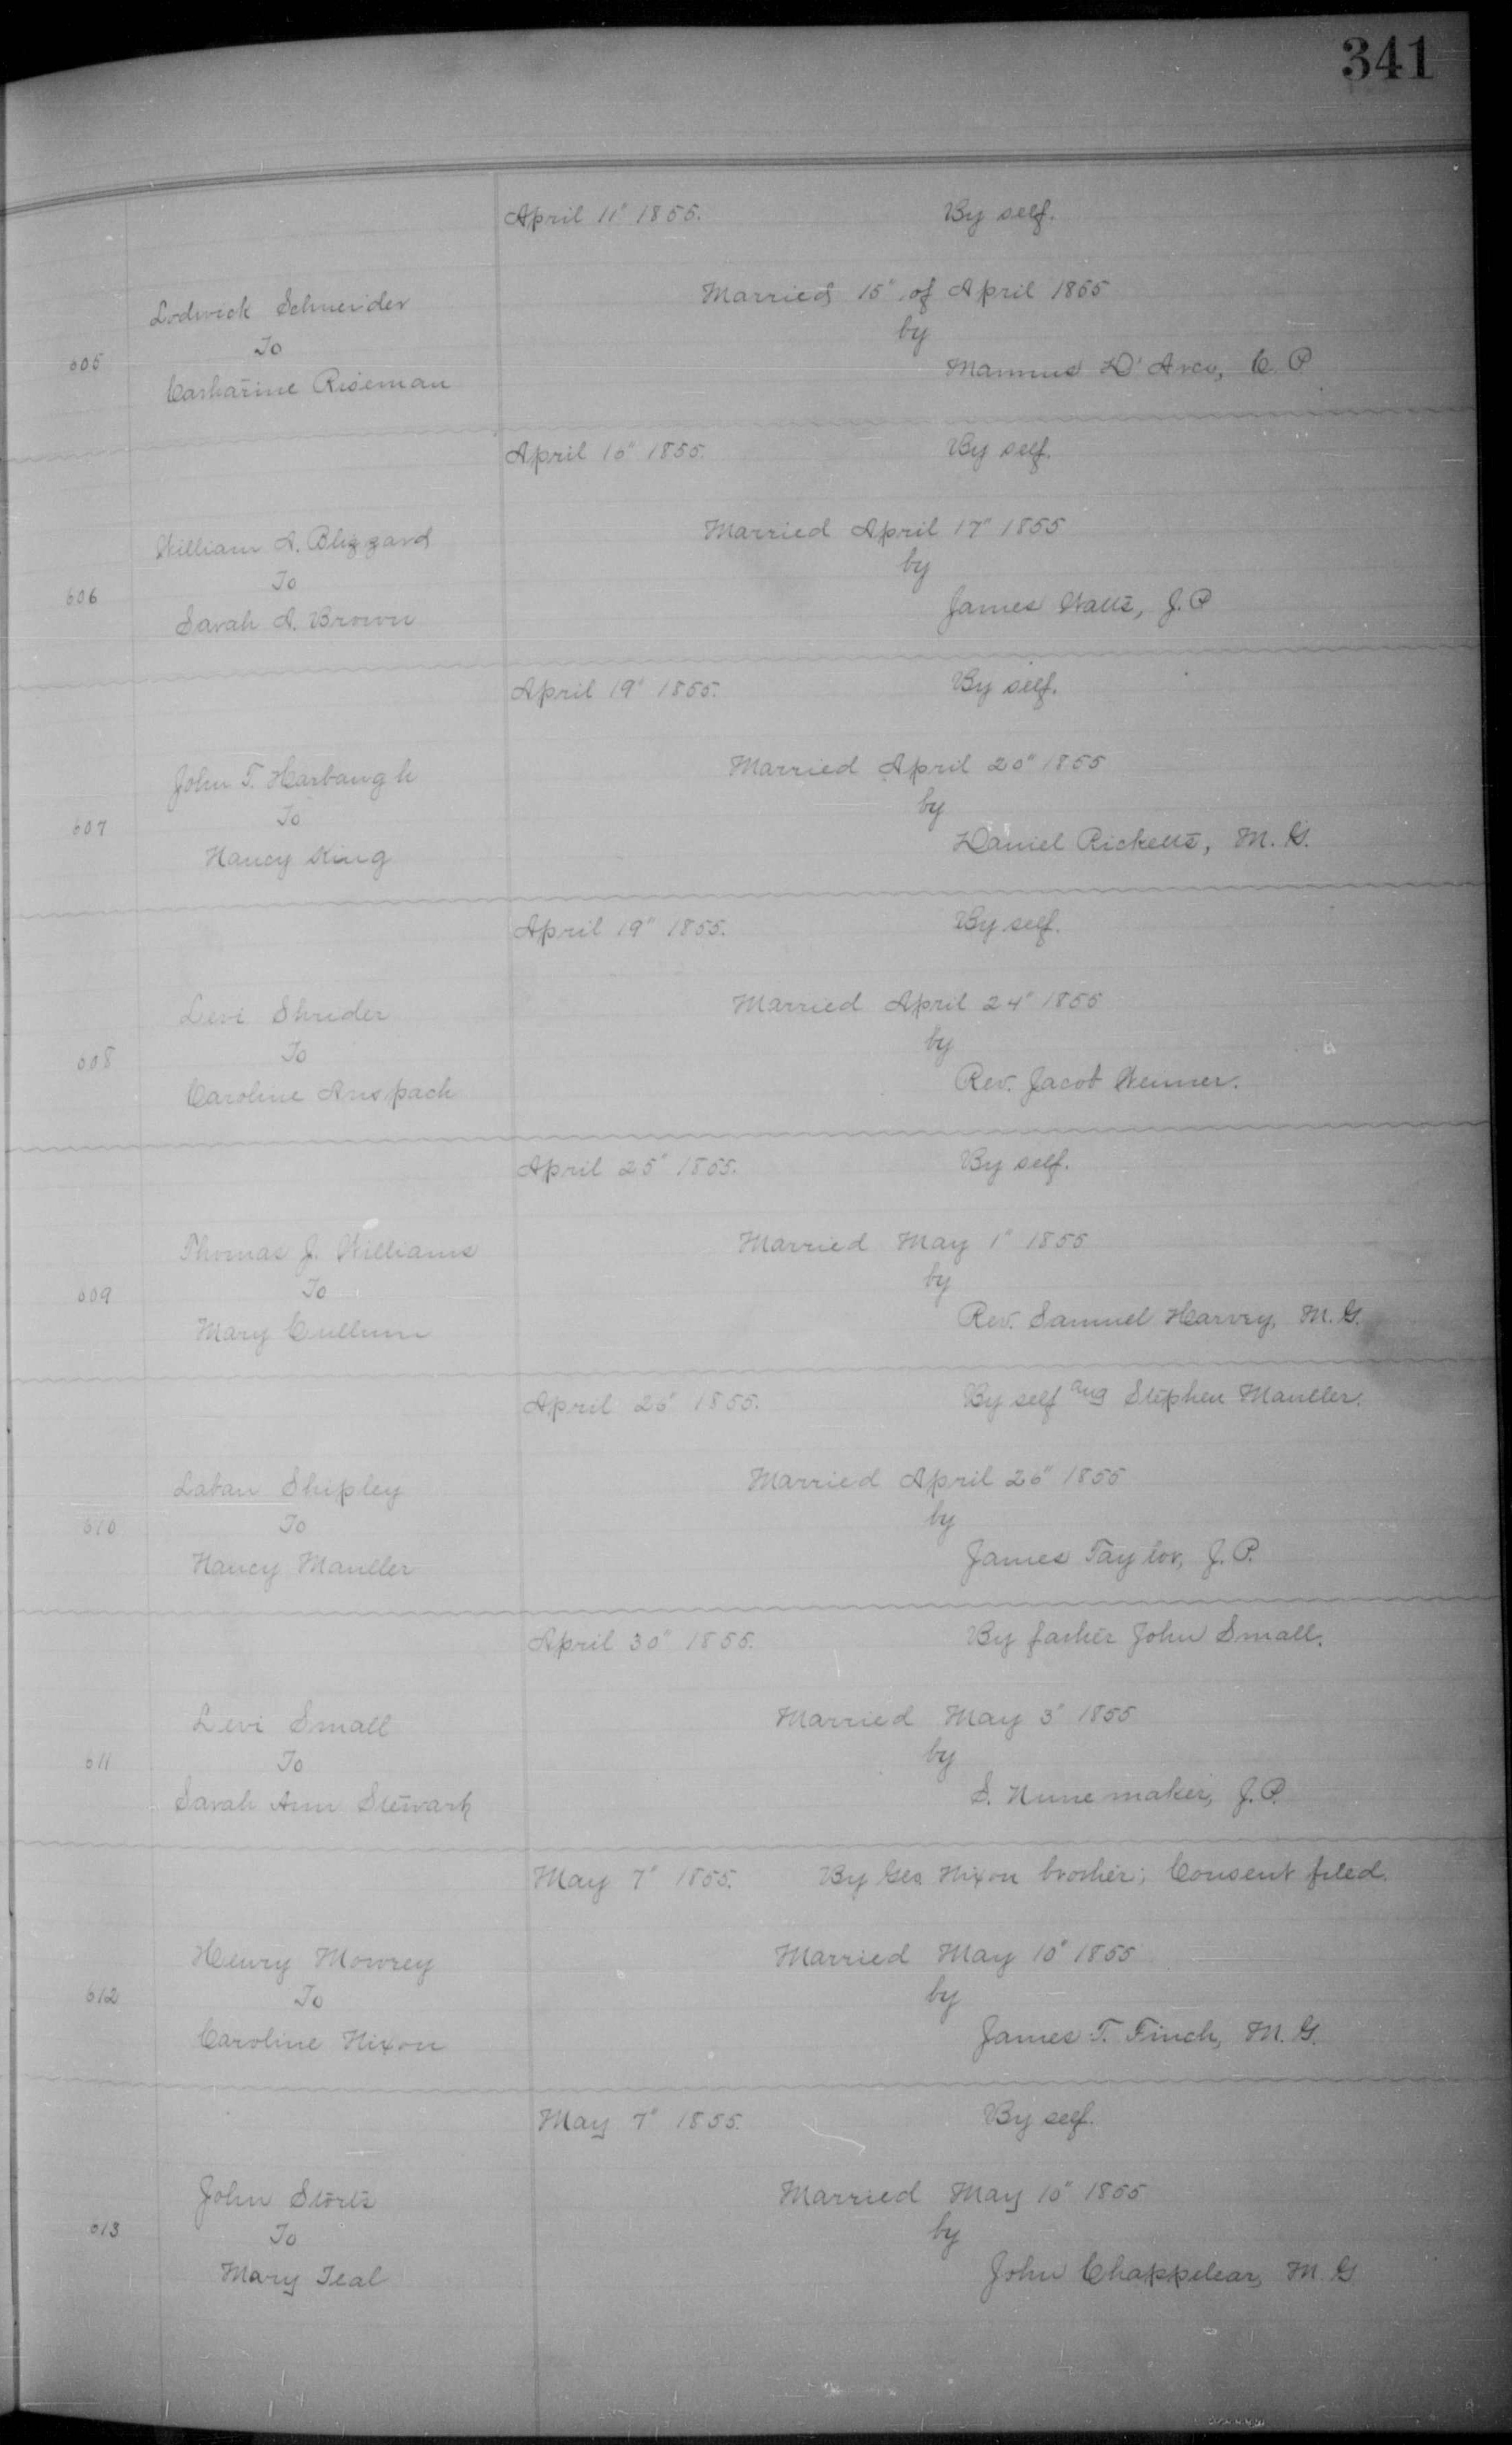 341
April 11" 1855. By self.
Married 15" of April 1855
Lodwick Schneider
by
605 To
Mannus D'Arco, C. P.
Catharine Riseman
April 16" 1855. By self.
Married April 17" 1855
William A. Blizzard
by
606 To
James Watts, J. P.
Sarah A. Brown
April 19" 1855. By self.
Married April 20" 1855
John T. Harbaugh
by
607 To
Daniel Ricketts, M. G.
Nancy King
April 19" 1855. By self.
Married April 24" 1855
Levi Shrider
by
608 To
Rev. Jacob Wenner.
Caroline Anspach
April 25" 1855. By self.
Married May 1" 1855
Thomas J. Williams
by
609 To
Rev. Samuel Harvey, M. G.
Mary Cullum
April 26" 1855. By self and Stephen Mauller.
Married April 26" 1855
Laban Shipley
by
610 To
James Taylor, J. P.
Nancy Mauller
April 30" 1855. By father John Small.
Married May 3" 1855
Levi Small
by
611 To
S. Nunemaker, J. P.
Sarah Ann Stewart
May 7" 1855. By Geo. Nixon brother; Consent filed.
Married May 10" 1855
Henry Mowrey
by
612 To
James T. Finch, M. G.
Caroline Nixon
May 7" 1855. By self.
Married May 10" 1855
John Storts
by
613 To
John Chappelear, M. G.
Mary Teal